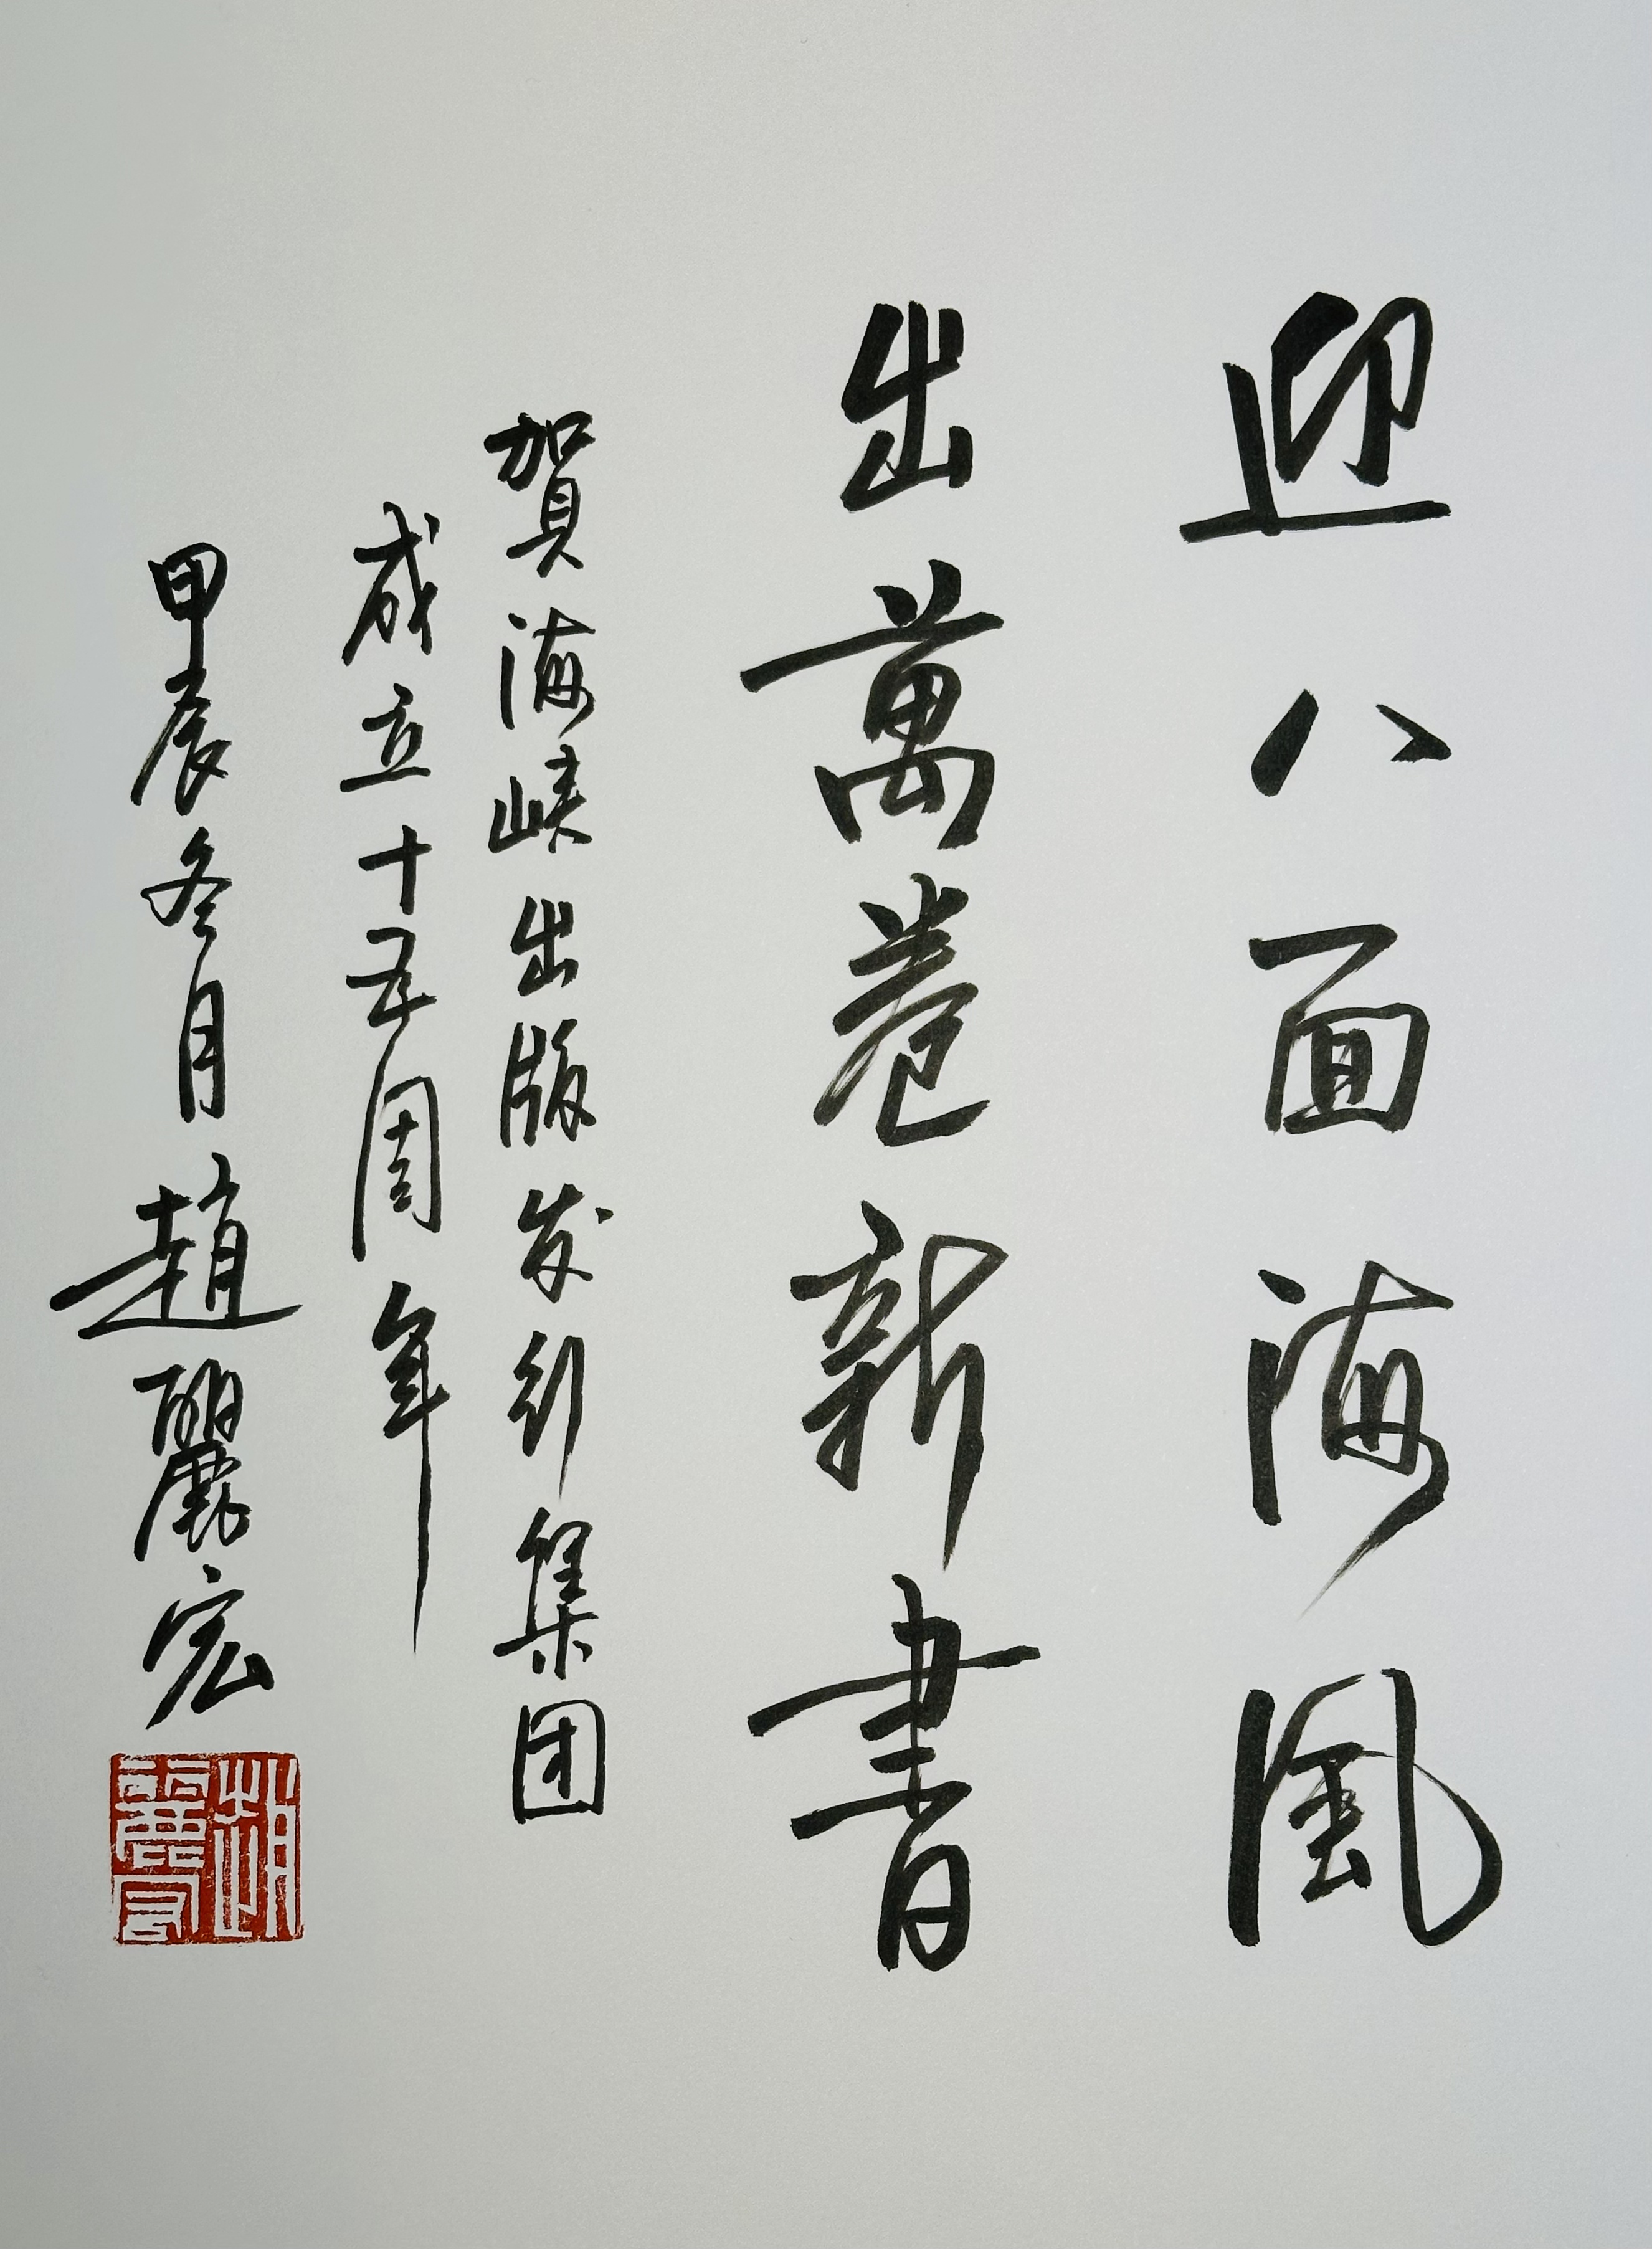 迎八面海風
出萬卷新書
賀海峡出版发行集团
成立十五周年
甲辰冬月趙麗宏
趙麗宏